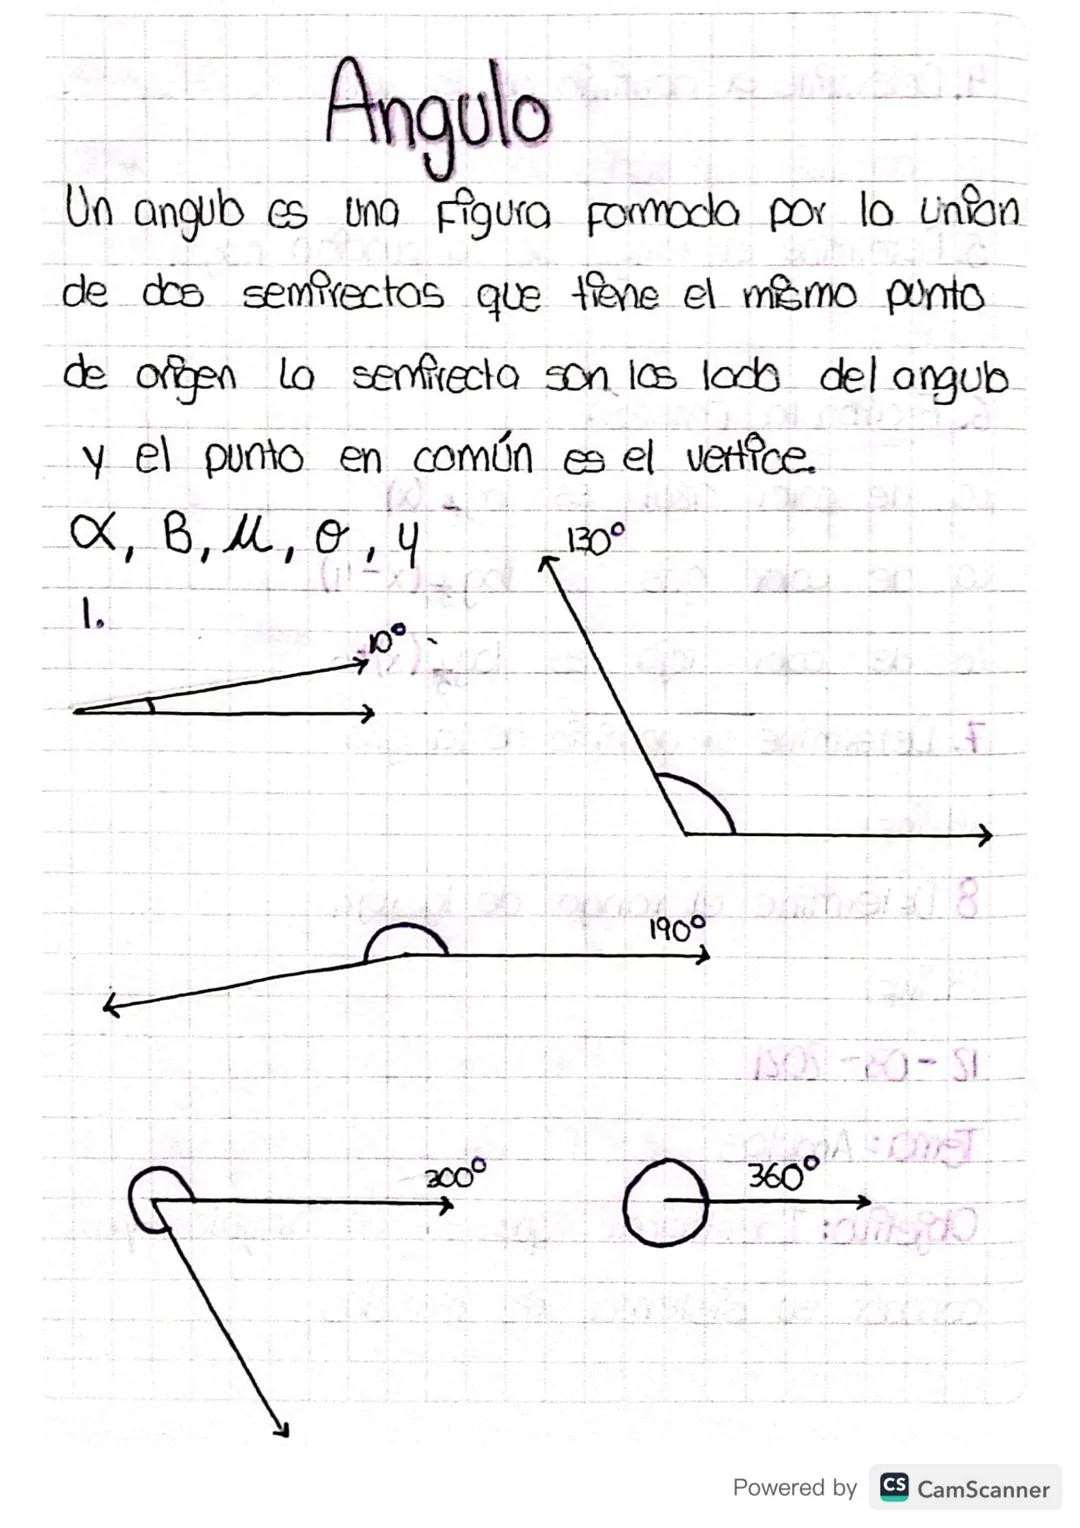 Angulo
Un angulo es una figura formada por la unión
de dos semirectas que tiene el mismo punto
de origen La semirecta son los lado del angulo
y el punto en común es el vertice.
α, B, μ, θ, y
1.
130°
10°
190°
300°
360°
Powered by CS CamScanner